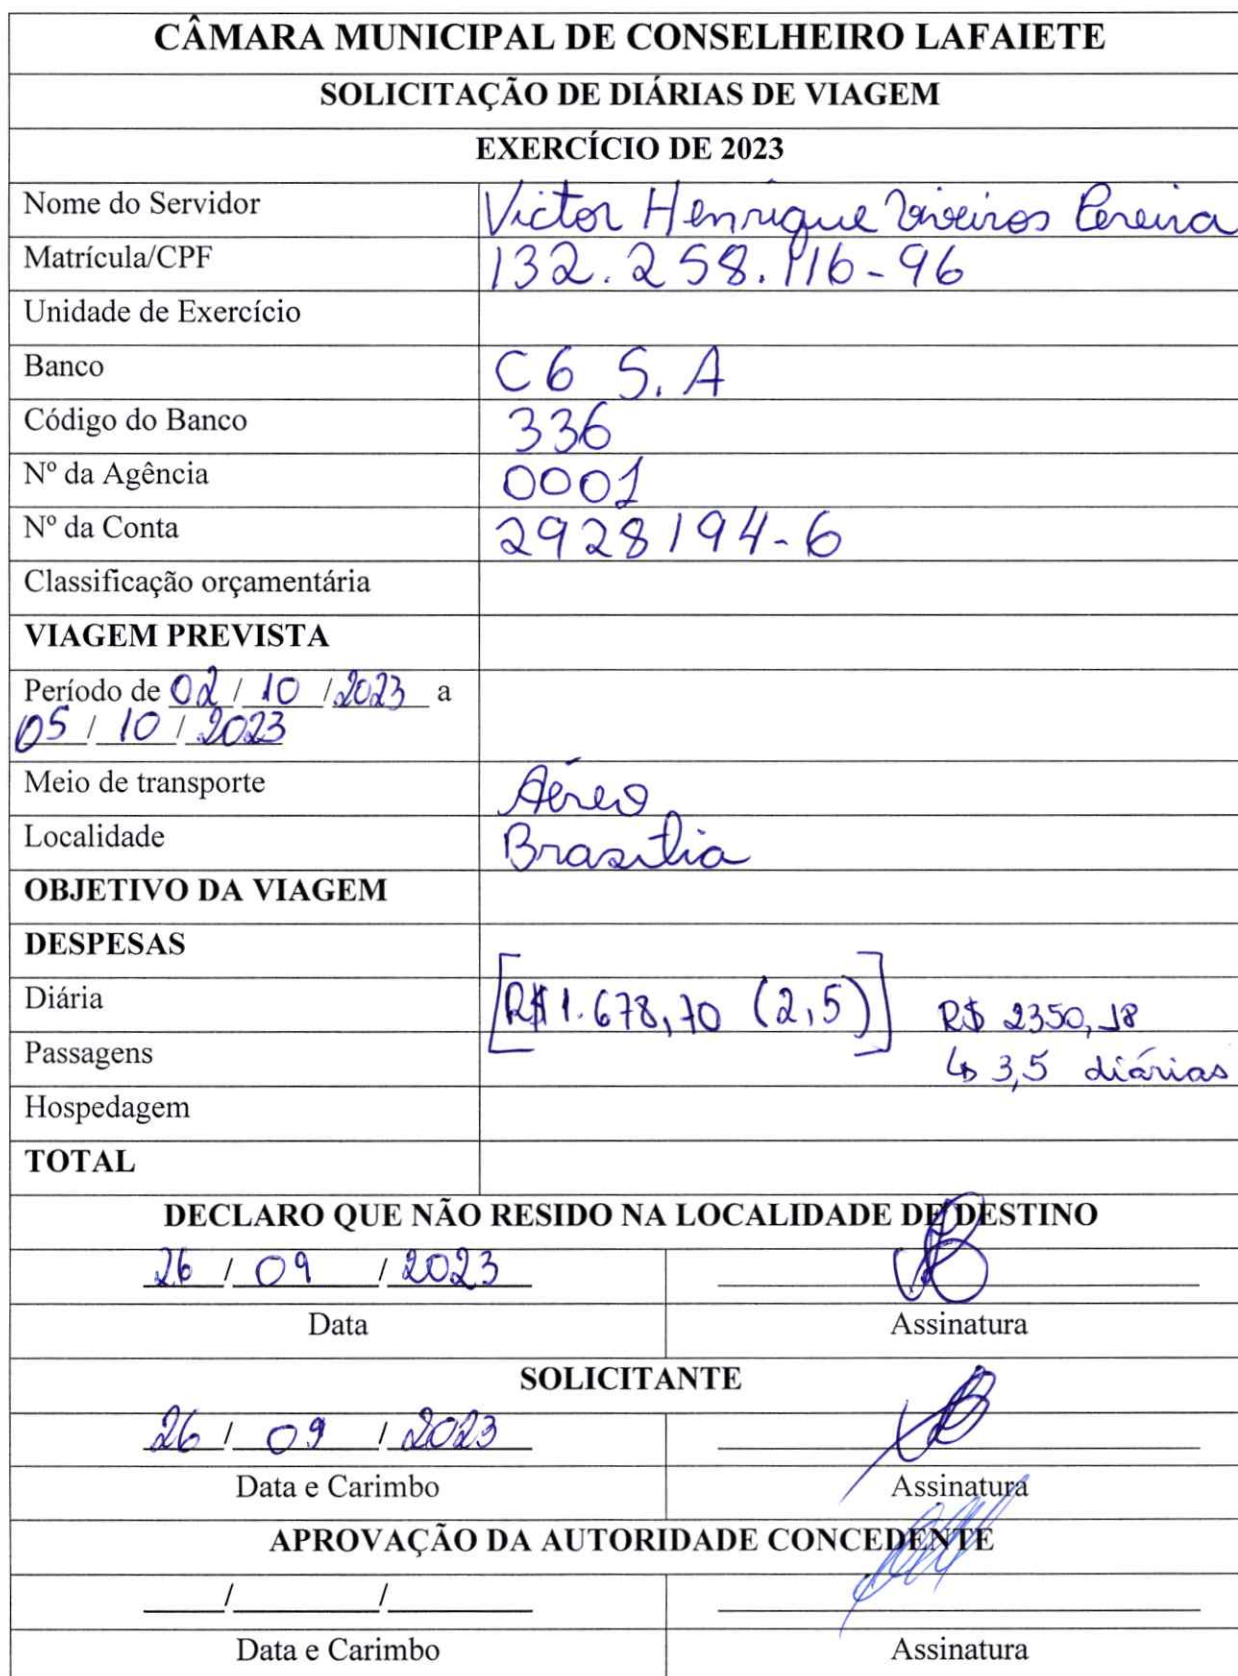 CÂMARA MUNICIPAL DE CONSELHEIRO LAFAIETE
SOLICITAÇÃO DE DIÁRIAS DE VIAGEM
EXERCÍCIO DE 2023
Nome do Servidor Victor Henrique Pereira
Matrícula/CPF 132.258.116-96
Unidade de Exercício
Banco C6 S.A
Código do Banco 336
Nº da Agência 0001
Nº da Conta 2928194-6
Classificação orçamentária
VIAGEM PREVISTA
Período de 02/10/2023 a
05/10/2023
Meio de transporte Aéreo
Localidade Brasília
OBJETIVO DA VIAGEM
DESPESAS
Diária [R$ 1.678,70 (2,5)] R$ 2350,18
Passagens ↳ 3,5 diárias
Hospedagem
TOTAL
DECLARO QUE NÃO RESIDO NA LOCALIDADE DE DESTINO
26/09/2023
Data Assinatura
SOLICITANTE
26/09/2023
Data e Carimbo Assinatura
APROVAÇÃO DA AUTORIDADE CONCEDENTE
____/_______/________
Data e Carimbo Assinatura